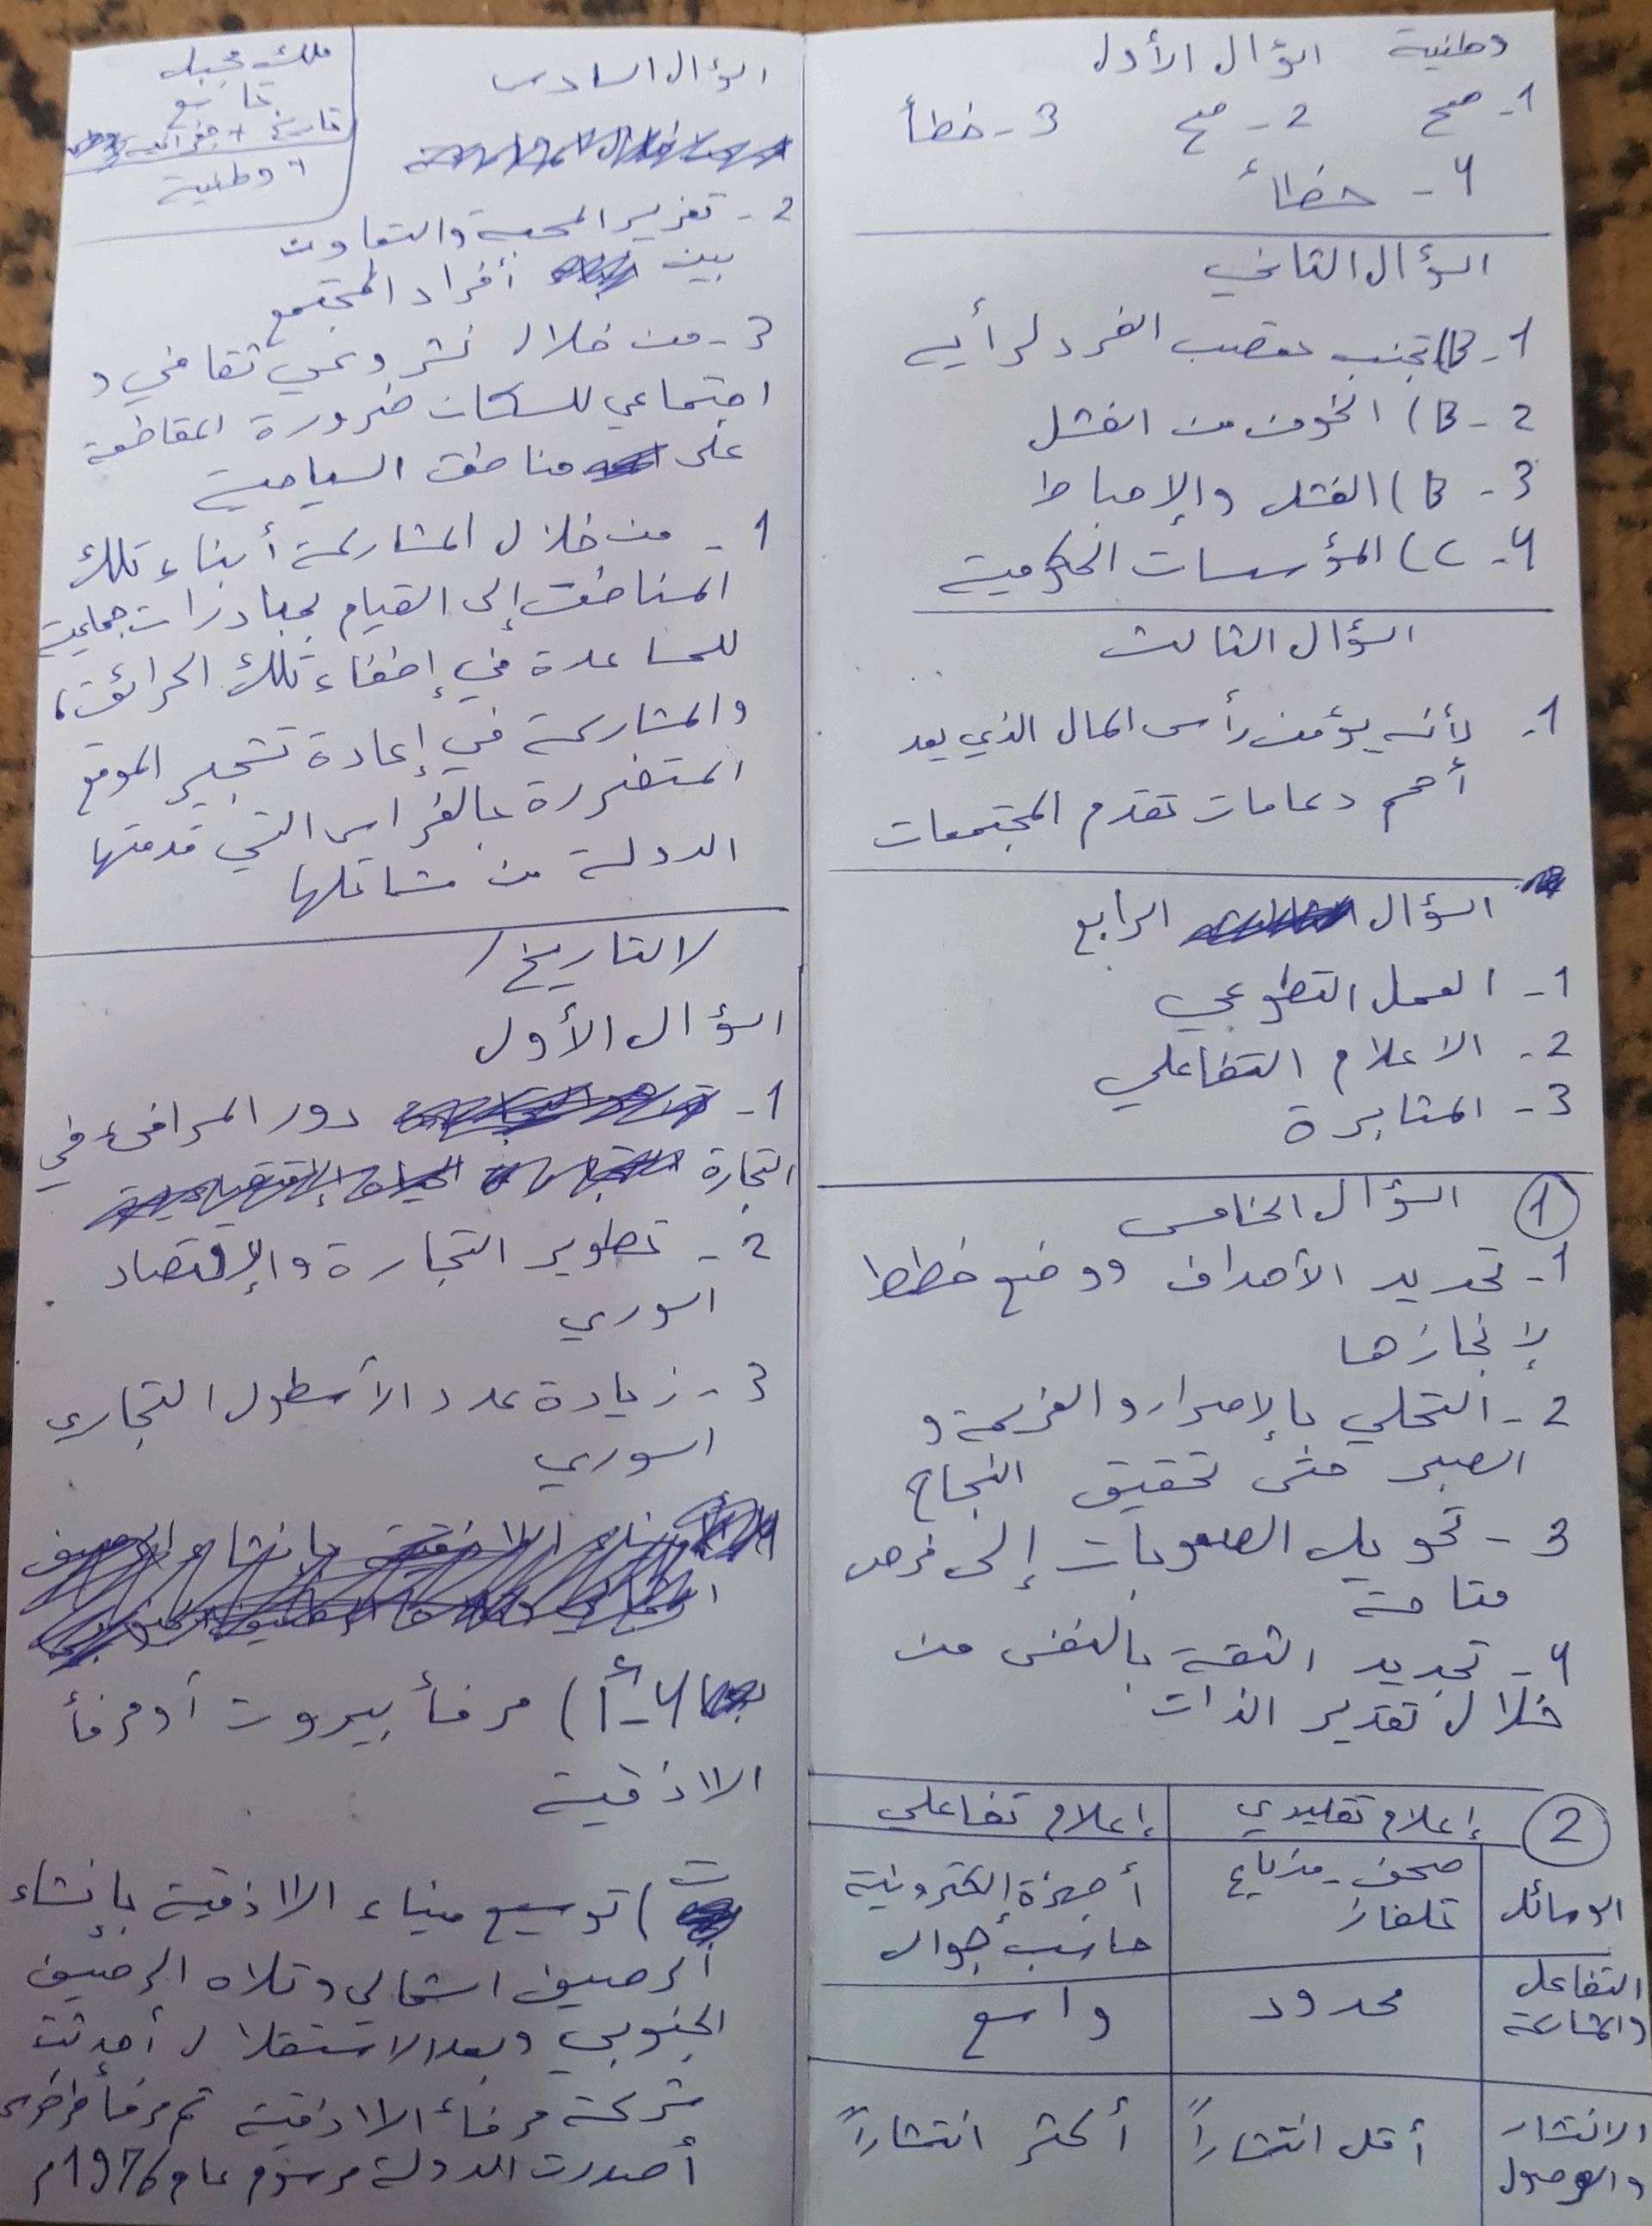 وطنية السؤال الأول
1- صح 2- صح 3- خطأ
4- خطأ
السؤال الثاني
1- B) تجنب تعصب الفرد لرأيه
2- B) الخوف من الفشل
3- B) الفشل والإحباط
4- C) المؤسسات الحكومية
السؤال الثالث
1- لأنه يؤمن رأس المال الذي يعد
أهم دعامات تقدم المجتمعات
السؤال الرابع
1- العمل التطوعي
2- الاعلام التفاعلي
3- المثابرة
1 السؤال الخامس
1- تحديد الأهداف ووضع خطط
لإنجازها
2- التحلي بالإصرار والعزيمة و
الصبر حتى تحقيق النجاح
3- تحويل الصعوبات إلى فرص
متاحة
4- تجديد الثقة بالنفس من
خلال تقدير الذات
2 إعلام تقليدي إعلام تفاعلي
الوسائل صحف - مذياع تلفاز أجهزة إلكترونية حاسب جوال
التفاعل والمشاركة محدود واسع
الانتشار والوصول أقل انتشاراً أكثر انتشاراً
ملك
تاسع
تاريخ + جغرافية
+ وطنية
السؤال السادس
2- تعزيز المحبة والتعاون
بين أفراد المجتمع
3- من خلال نشر وعي ثقافي و
اجتماعي للسكان ضرورة المقاطعة
على مناطق السياحية
1- من خلال المشاركة أبناء تلك
المناطق إلى القيام بمبادرات جماعية
للمساعدة في إطفاء تلك الحرائق،
والمشاركة في إعادة تشجير الموقع
المتضررة بالغراس التي قدمتها
الدولة من مشاتلها
/التاريخ/
السؤال الأول
1- دور المرافئ في
التجارة
2- تطوير التجارة والإقتصاد
السوري
3- زيادة عدد الأسطول التجاري
السوري
4- أ) مرفأ بيروت أو مرفأ
الاذقية
ت) توسيع ميناء الاذقية بإنشاء
الرصيف الشمالي وتلاه الرصيف
الجنوبي وبعد الاستقلال أحدثت
شركة مرفأ الاذقية ثم مرفأ طرطوس
أصدرت الدولة مرسوم عام 1976م